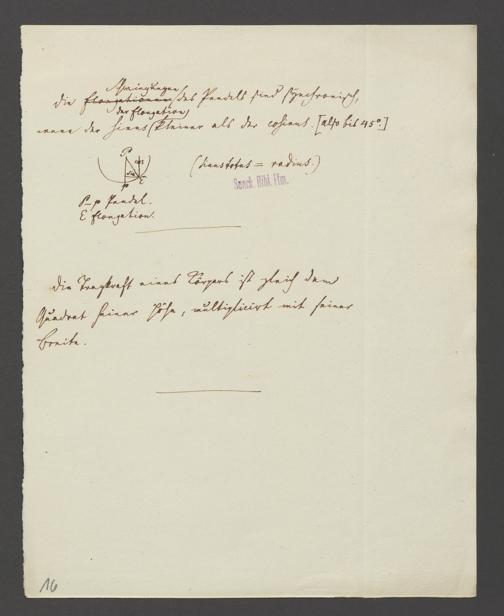 Schwingungen
die Elongationen des Pendels sind synchronisch,
der Elongation
wenn der Sinus kleiner als der cosinus. [also bis 45°.]
P
cos
sin
p E
(sinus totus = radius.)
Senck. Bibl. Ffm.
P–p Pendel.
E Elongation.
Die Tragkraft eines Körpers ist gleich dem
Quadrat seiner Höhe, multiplicirt mit seiner
Breite.
16